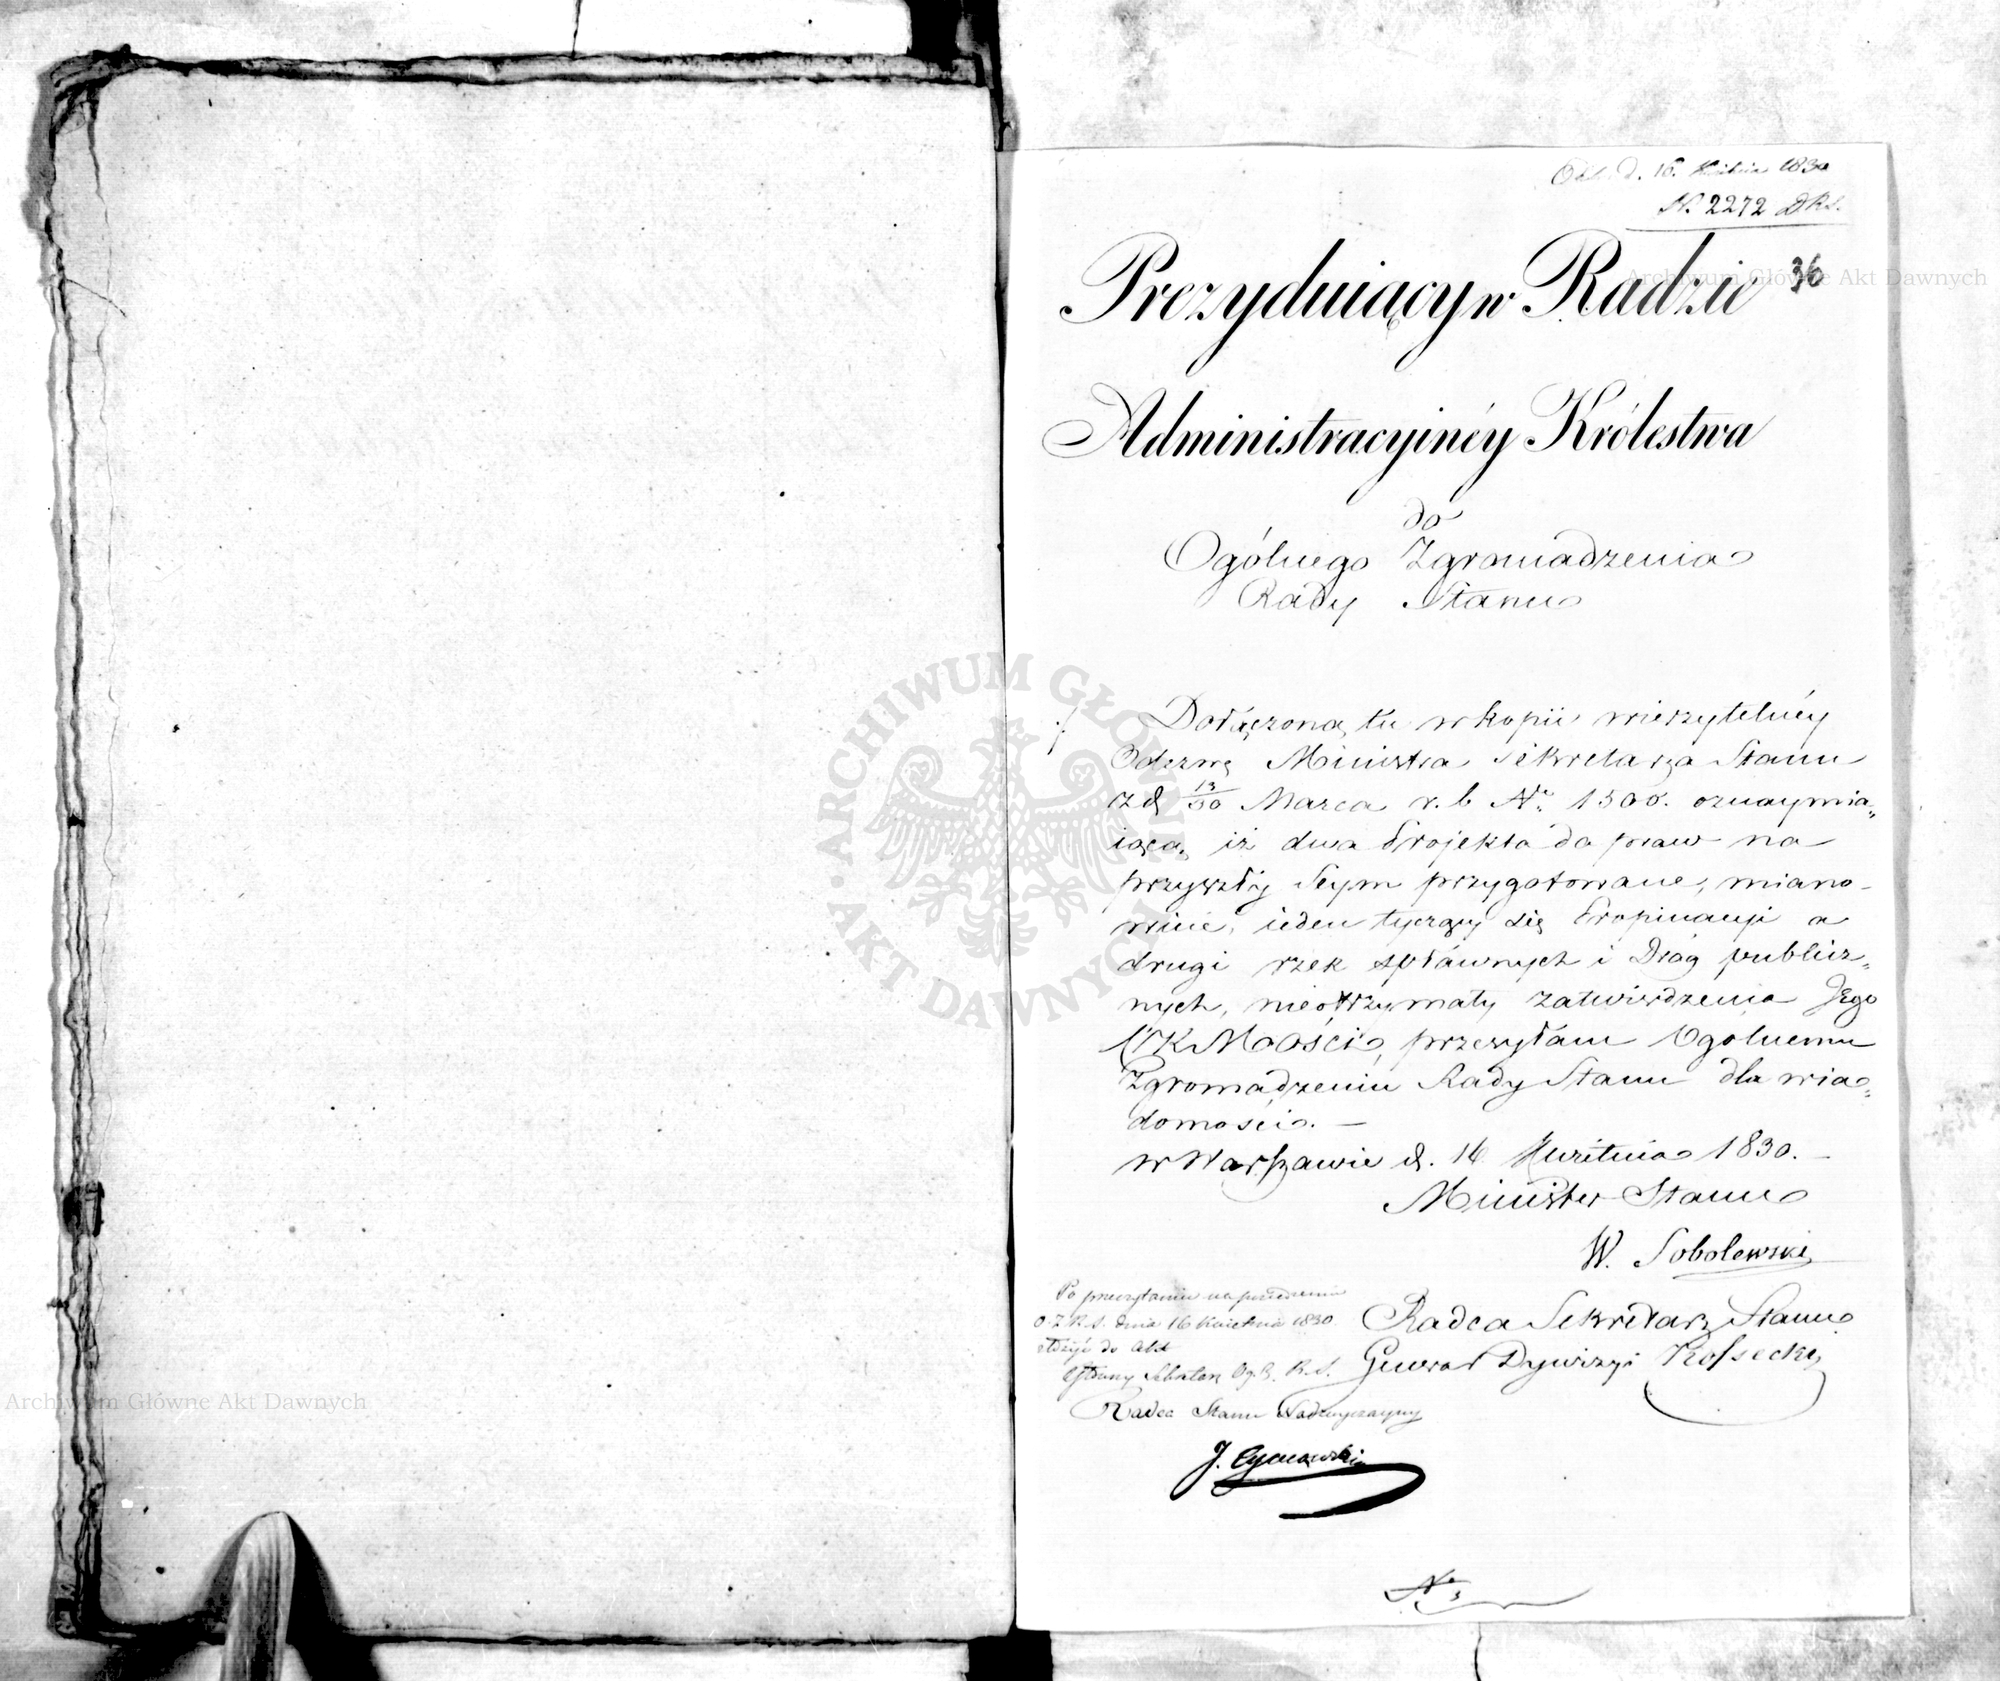 d. 16. Kwietnia 1830
N. 2272 DRS.
36
Prezyduiący w Radzie
Administracyinéy Królestwa
do
Ogólnego Zgromadzenia
Rady Stanu
./. Dołączoną tu w kopii wierzytelnéy
Odezwę Ministra Sekretarza Stanu
z d. 18/30 Marca r. b. Nr. 1300. oznaymia„
iącą, iż dwa Projekta do praw na
przyszły Seym przygotowane, miano-
wicie, ieden tyczący się Propinacyi a
drugi rzek spławnych i Dróg publicz„
nych, nieotrzymały zatwierdzenia Jego
CK Mości, przesyłam Ogolnemu
Zgromadzeniu Rady Stanu dla wia„
domości. —
w Warszawie d. 16 Kwietnia 1830. —
Minister Stanu
W. Sobolewski
Radca Sekretarz Stanu
Generał Dywizyi Kossecki
Po przeczytaniu na posiedzeniu
O. Z. R. S. dnia 16 Kwietnia 1830
złożyć do Akt
R. S.
Radca Stanu Nadzwyczayny
J.
No.
Archiwum Główne Akt Dawnych
ARCHIWUM GŁÓWNE AKT DAWNYCH
Archiwum Główne Akt Dawnych